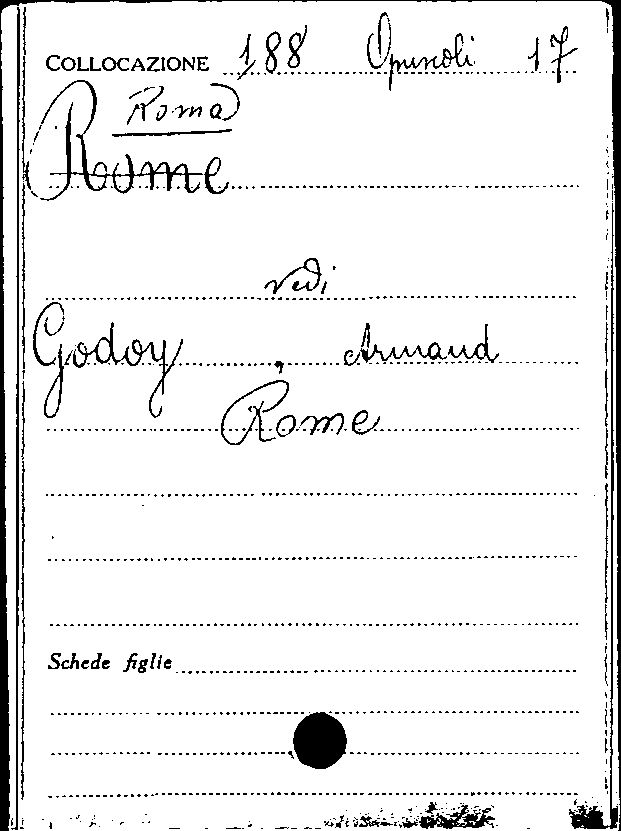 COLLOCAZIONE 188 Opuscoli 17
Roma
Rome
vedi
Godoy, Armand
Rome
Schede figlie